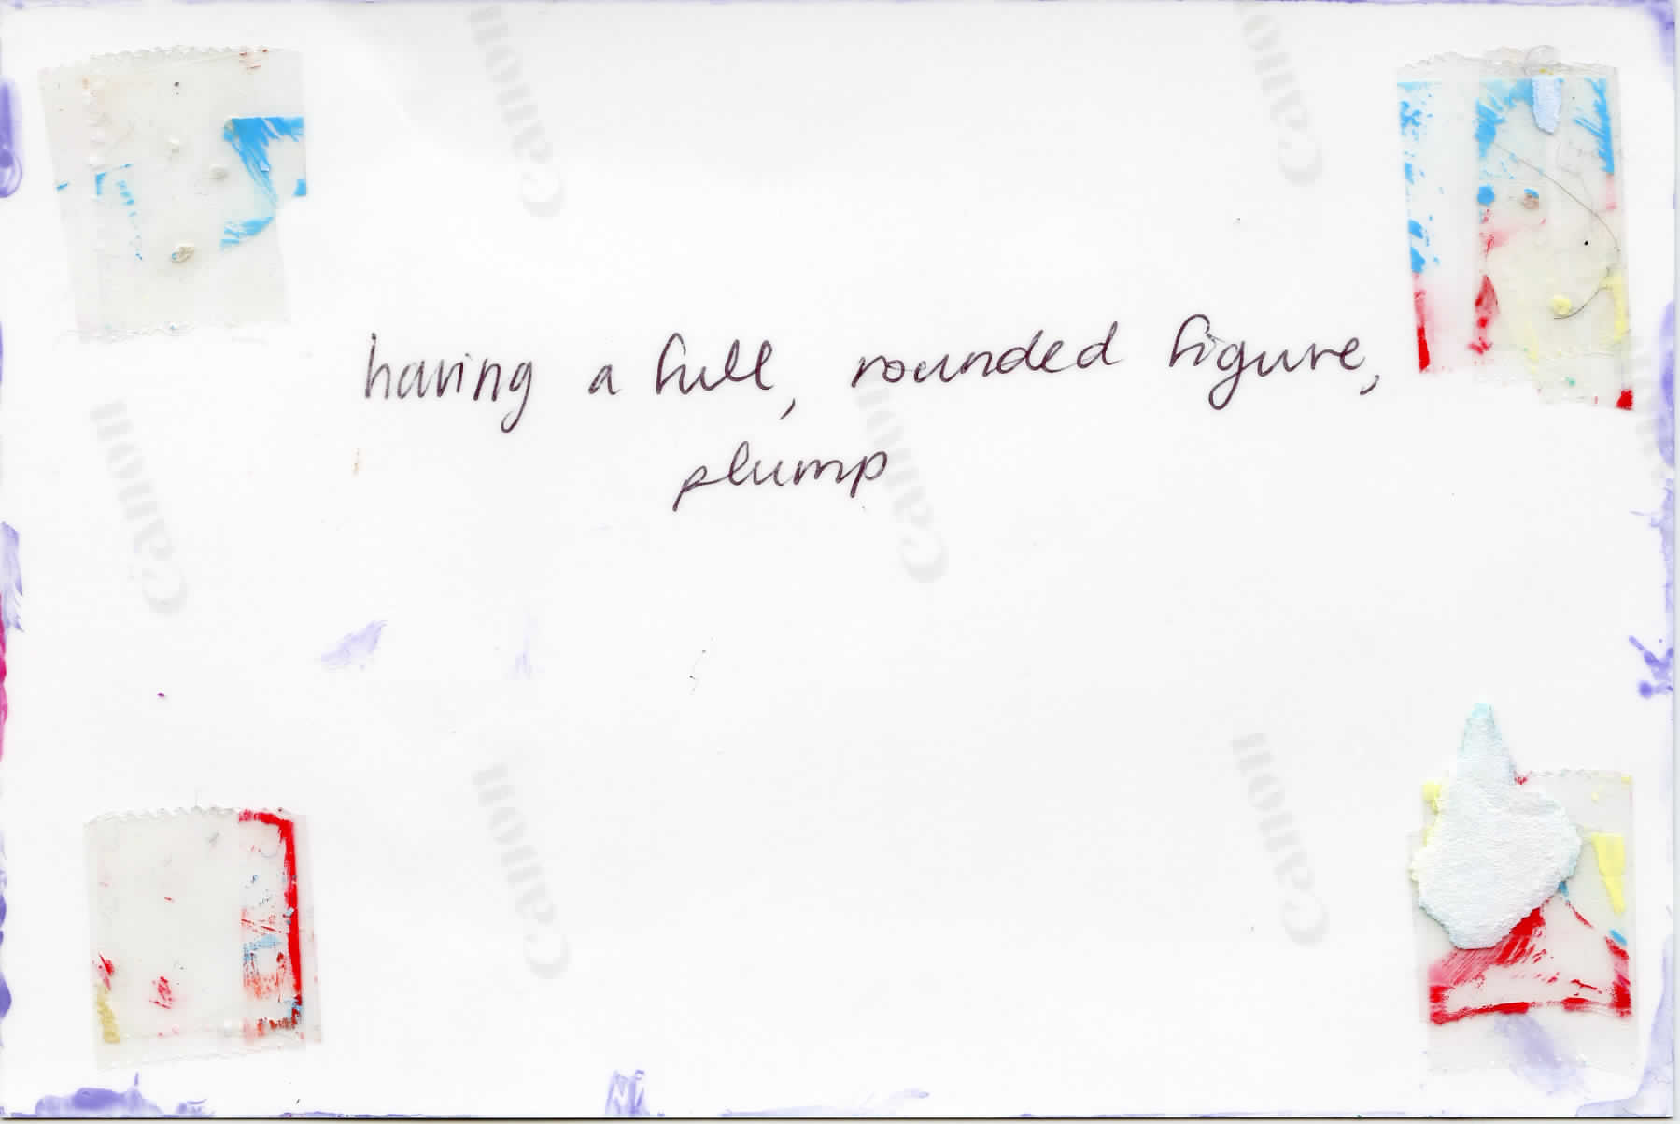 having a full, rounded figure,
plump
Canon
Canon
Canon
Canon
Canon
Canon